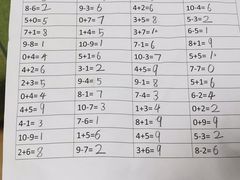 8-6=2 9-3=6 4+2=6 10-4=6
5+0=5 0+7=7 3+5=8 5-3=2
7+1=8 1+4=5 3+7=10 6-5=1
9-8=1 10-9=1 7-1=6 8+1=9
0+4=4 5+1=6 10-3=7 5+5=10
4+2=6 3-1=2 4+5=9 7-7=0
2+3=5 9-5=4 9-1=8 5+1=6
0+4=4 8-1=7 7-4=3 6-2=4
4+5=9 10-7=3 1+3=4 0+2=2
4-1=3 7-6=1 8+1=9 0+9=9
10-9=1 1+5=6 4+5=9 5-3=2
2+6=8 9-7=2 3+6=9 8-2=6